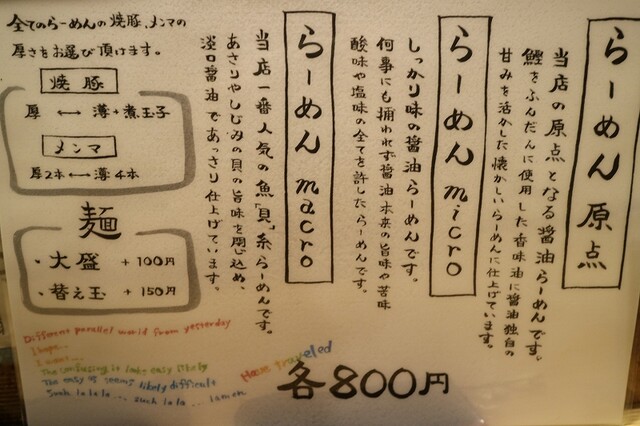 らーめん 原点
当店の原点となる醤油らーめんです。
鰹をふんだんに使用した香味油に醤油独自の
甘みを活かした懐かしいらーめんに仕上げています。
らーめん micro
しっかり味の醤油らーめんです。
何事にも捕われず醤油本来の旨味や苦味
酸味や塩味の全てを許したらーめんです。
らーめん macro
当店一番人気の魚「貝」系らーめんです。
あさりやしじみの貝の旨味を閉じ込め、
淡口醤油であっさり仕上げています。
全てのらーめんの焼豚、メンマの
厚さをお選び頂けます。
焼豚
厚 ⟷ 薄+煮玉子
メンマ
厚2本⟷薄4本
麺
・大盛 +100円
・替え玉 +150円
各800円
Different parallel world from yesterday
I hope...
I want...
The confusing it take easy likely
The easy it seems likely difficult
Such lalala... such lala... lamen
Have traveled